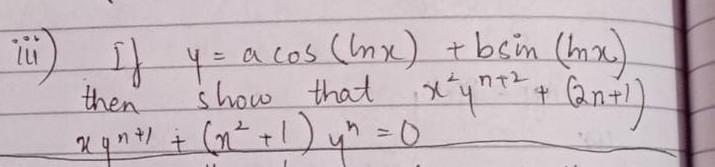 iii) If y = a cos (lnx) + b sin (lnx)
then show that x²yⁿ⁺² + (2n+1)
xyⁿ⁺¹ + (n² +1) yⁿ = 0